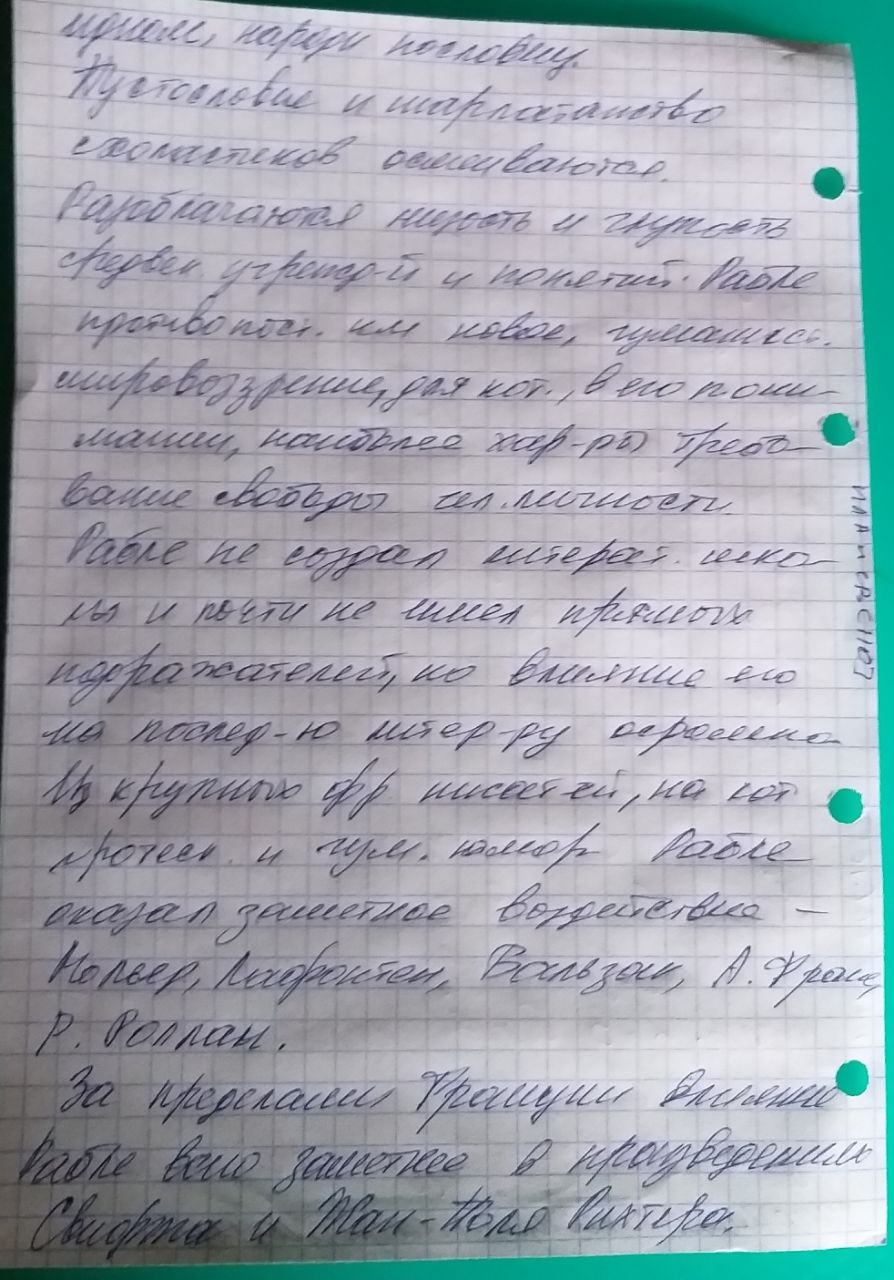 идиом, народн пословиц.
Пустословие и шарлатанство
схоластиков осмеиваются.
Разоблачаются низость и глупость
средвек. учрежд-й и понятий. Рабле
противопост. им новое, гуманист.
мировоззрение, для кот., в его пони-
мании, наиболее хар-ры требо-
вание свободы чел. личности.
Рабле не создал литерат. шко-
лы и почти не имел прямых
подражателей, но влияние его
на послед-ю литер-ру огромно
Из крупных фр писат-ей, на кот
гротеск. и гум. юмор Рабле
оказал заметное воздействие –
Мольер, Лафонтен, Бальзак, А. Франс,
Р. Роллан.
За пределами Франции влияние
Рабле всего заметнее в произведениях
Свифта и Жан-Поля Рихтера.